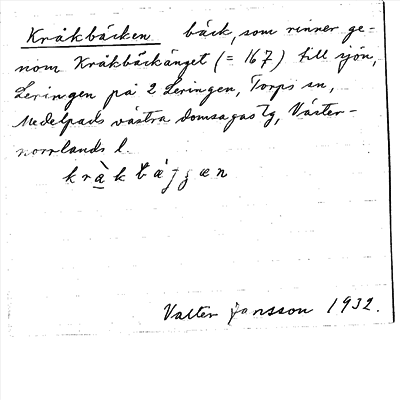 Kråkbäcken bäck, som rinner ge-
nom Kråkbäckänget (= 167) till sjön,
Leringen på 2 Leringen, Torps sn,
Medelpads västra domsagas tg, Väster-
norrlands l.
Valter Jansson 1932.